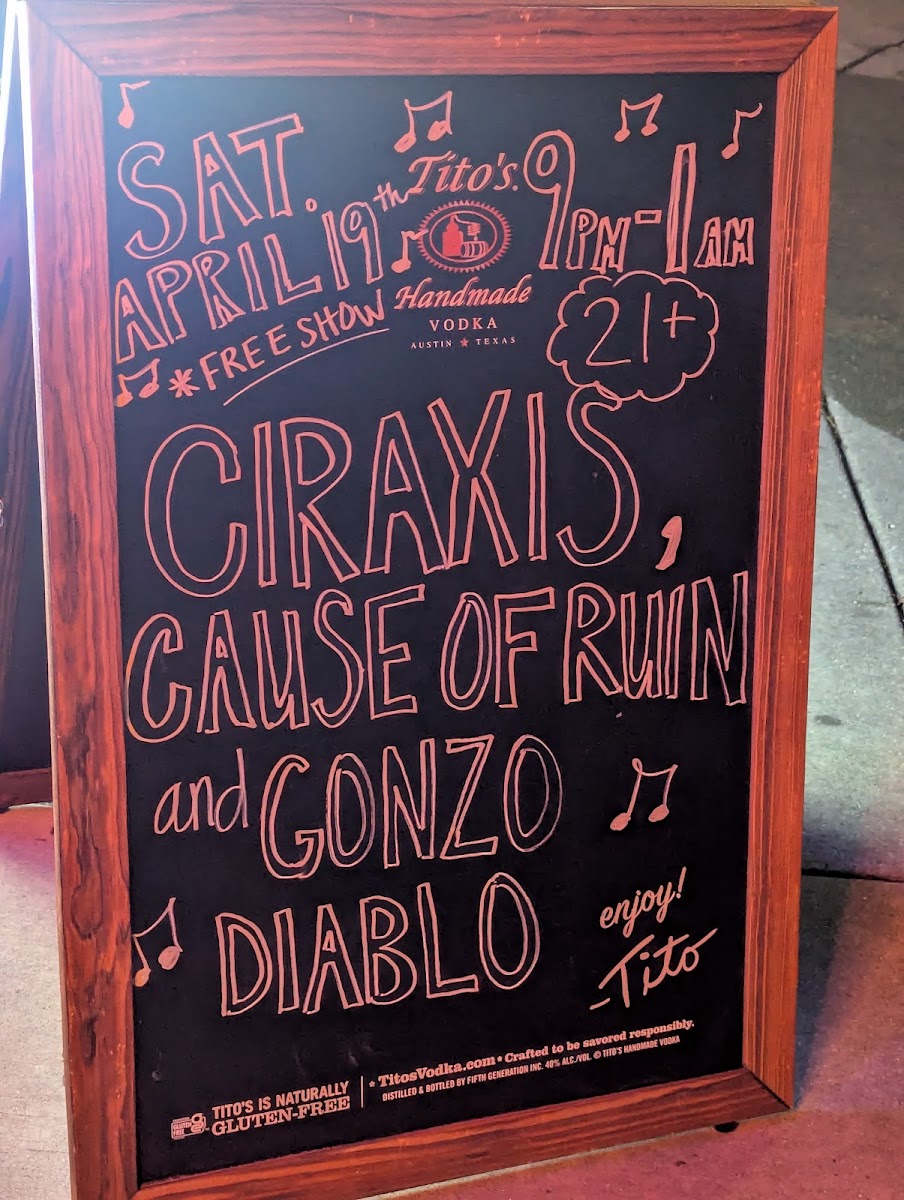 SAT.
APRIL 19th
*FREE SHOW
Tito's
Handmade
VODKA
AUSTIN ★ TEXAS
9PM-1AM
21+
CIRAXIS,
CAUSE OF RUIN
and GONZO
DIABLO
enjoy!
-Tito
TITO'S IS NATURALLY
GLUTEN-FREE
* TitosVodka.com * Crafted to be savored responsibly.
DISTILLED & BOTTLED BY FIFTH GENERATION INC. 40% ALC./VOL. © TITO'S HANDMADE VODKA